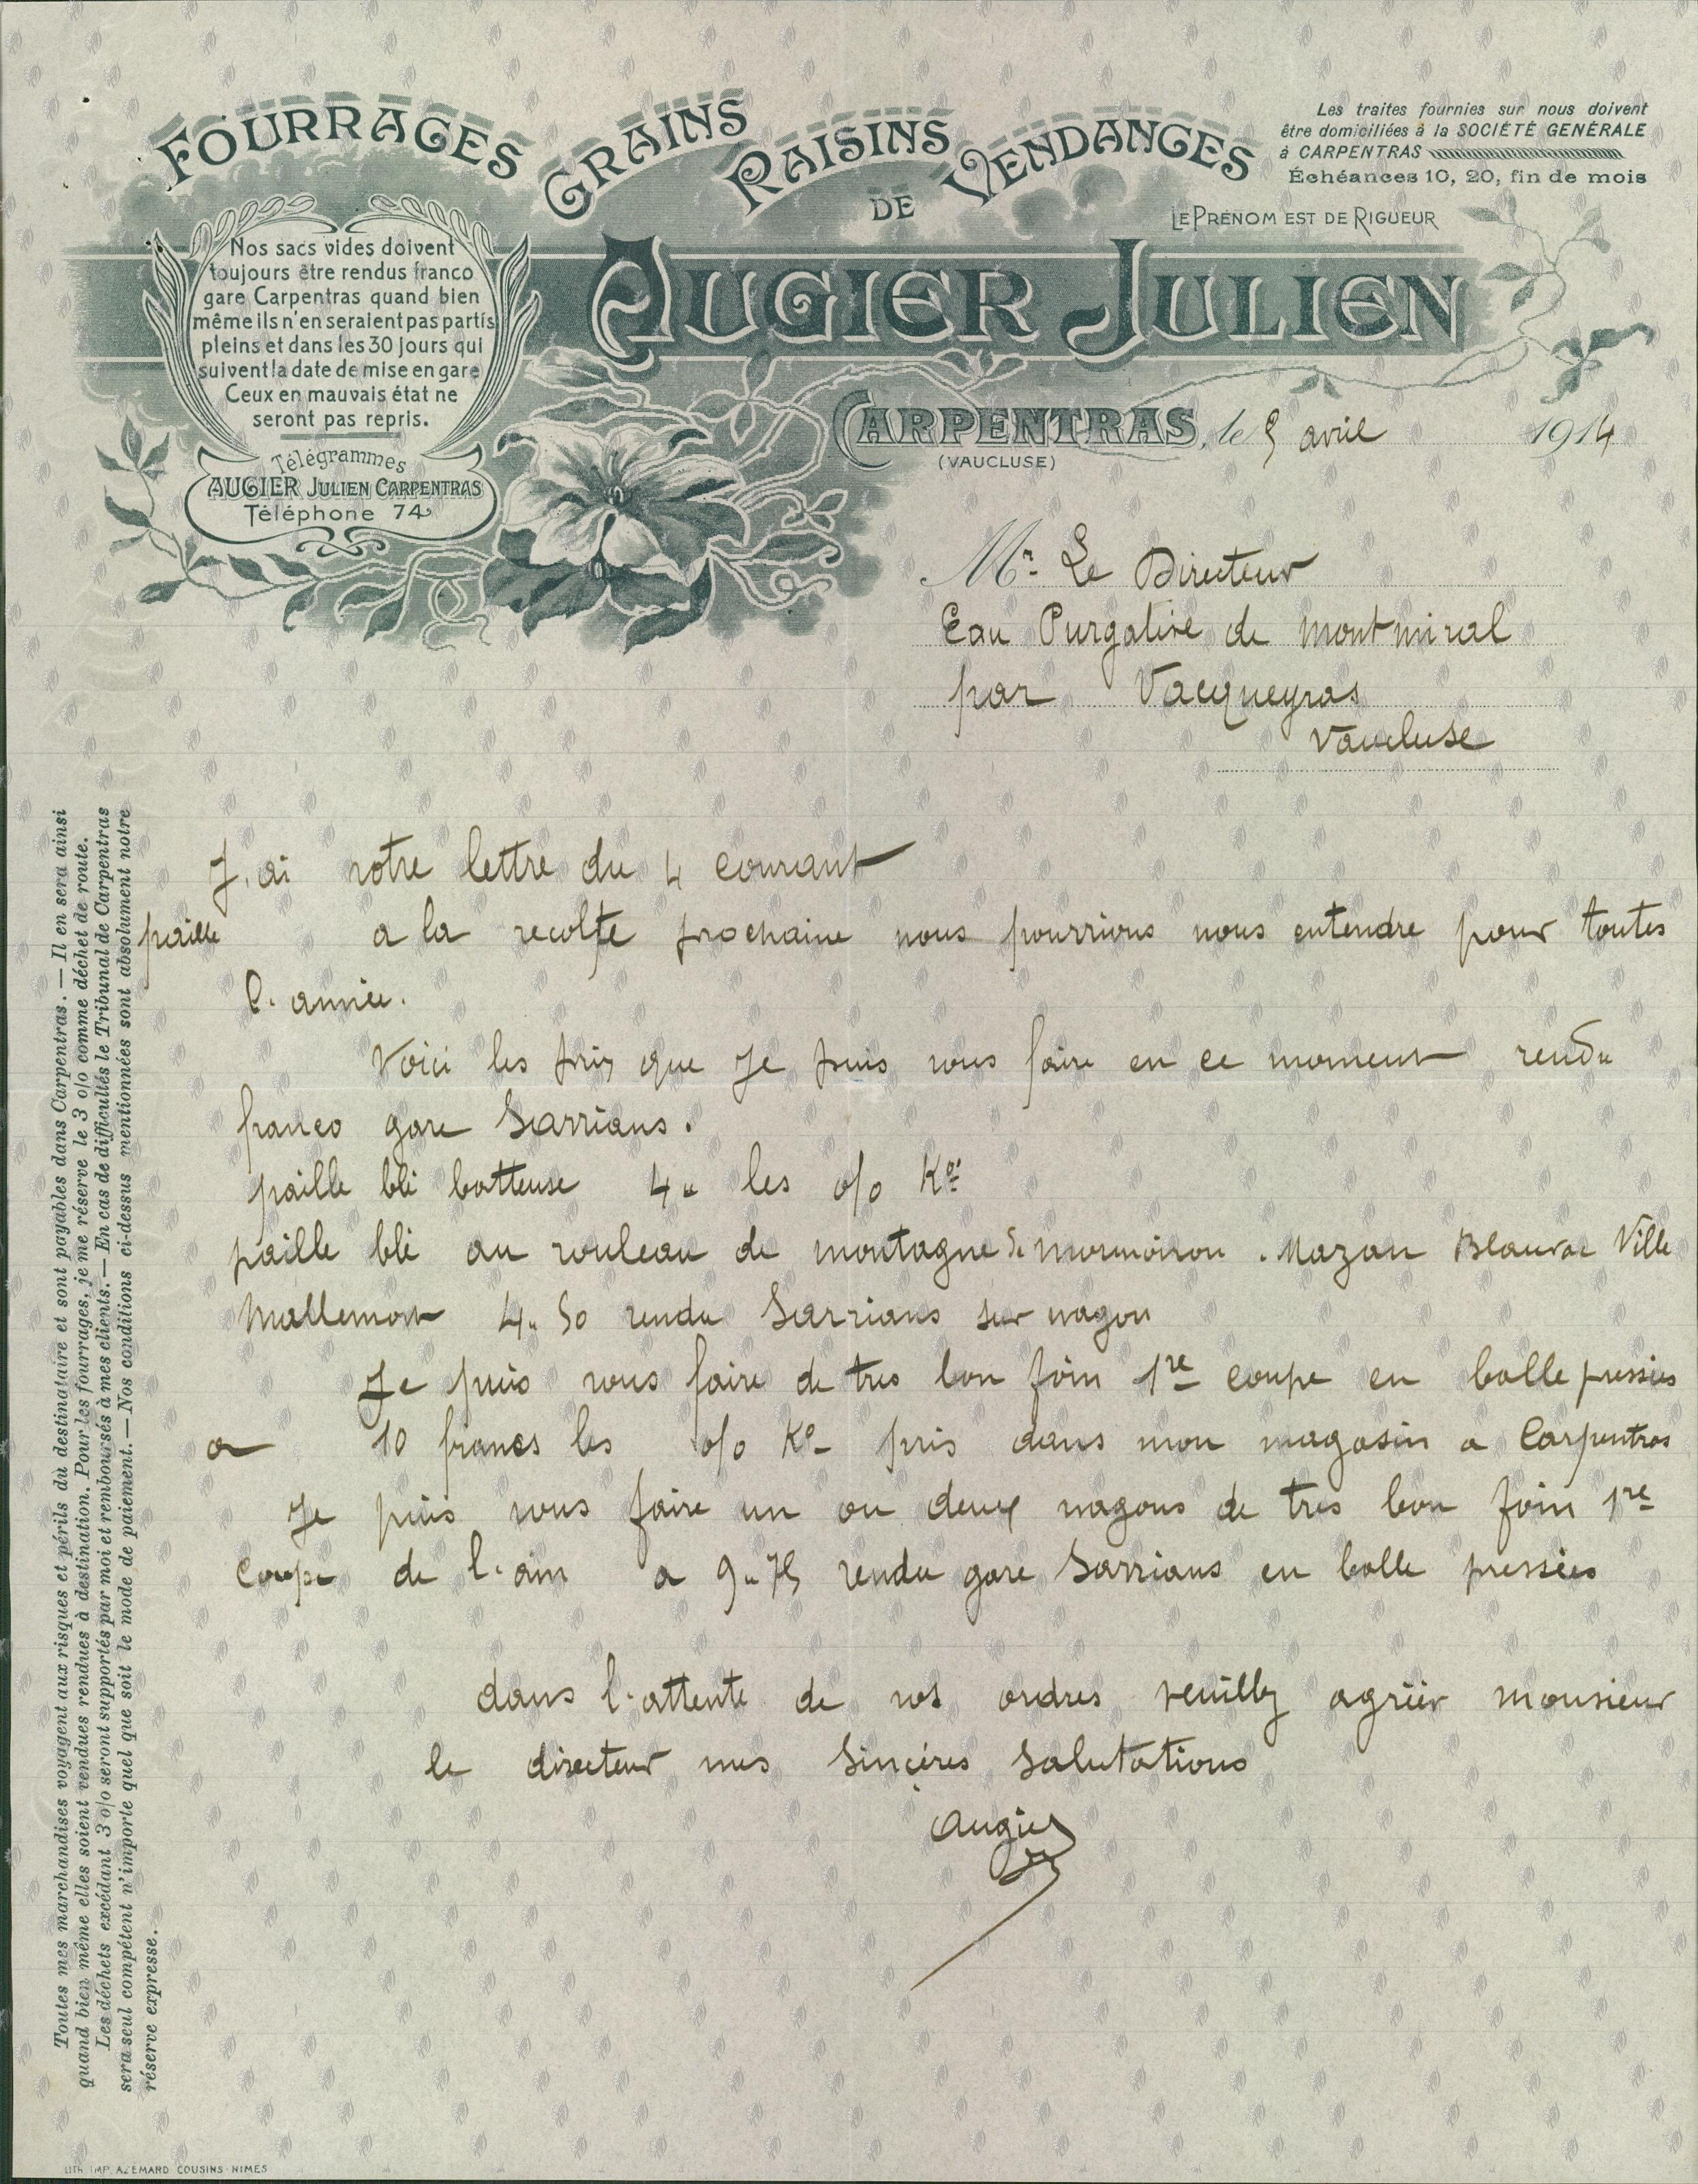 FOURRAGES GRAINS RAISINS DE VENDANGES
Les traites fournies sur nous doivent
être domiciliées à la SOCIÉTÉ GÉNÉRALE
à CARPENTRAS
Échéances 10, 20, fin de mois
LE PRÉNOM EST DE RIGUEUR
AUGIER JULIEN
Nos sacs vides doivent
toujours être rendus franco
gare Carpentras quand bien
même ils n'en seraient pas partis
pleins et dans les 30 jours qui
suivent la date de mise en gare
Ceux en mauvais état ne
seront pas repris.
Télégrammes
AUGIER JULIEN CARPENTRAS
Téléphone 74
CARPENTRAS, le 5 avril 1914
(VAUCLUSE)
Mr. Le Directeur
Eau Purgative de Montmiral
par Vacqueyras
Vaucluse
J. ai votre lettre du 4 courant
paille a la recolte prochaine nous pourrions nous entendre pour toutes
l. année.
Voici les prix que Je puis vous faire en ce moment rendu
franco gare Sarrians.
paille blé batteuse 4 " les o/o Kos
paille blé au rouleau de montagne de mormoiron . Mazan Blauvac Ville
Mallemont 4 " 50 rendu Sarrians sur wagon
Je puis vous faire de tres bon foin 1re coupe en balle pressées
a 10 francs les o/o Ko pris dans mon magasin a Carpentras
Je puis vous faire un ou deux wagons de tres bon foin 1re
coupe de l. ain a 9 " 75 rendu gare Sarrians en balle pressées
dans l. attente de vos ordres veuillez agréér monsieur
le directeur mes sincéres salutations
Augier
Toutes mes marchandises voyagent aux risques et périls du destinataire et sont payables dans Carpentras. — Il en sera ainsi
quand bien même elles soient vendues rendues à destination. Pour les fourrages, je me réserve le 3 o/o comme déchet de route.
Les déchets excédant 3 o/o seront supportés par moi et remboursés à mes clients. — En cas de difficultés le Tribunal de Carpentras
sera seul compétent n'importe quel que soit le mode de paiement. — Nos conditions ci-dessus mentionnées sont absolument notre
réserve expresse.
LITH. IMP. AZEMARD COUSINS - NIMES